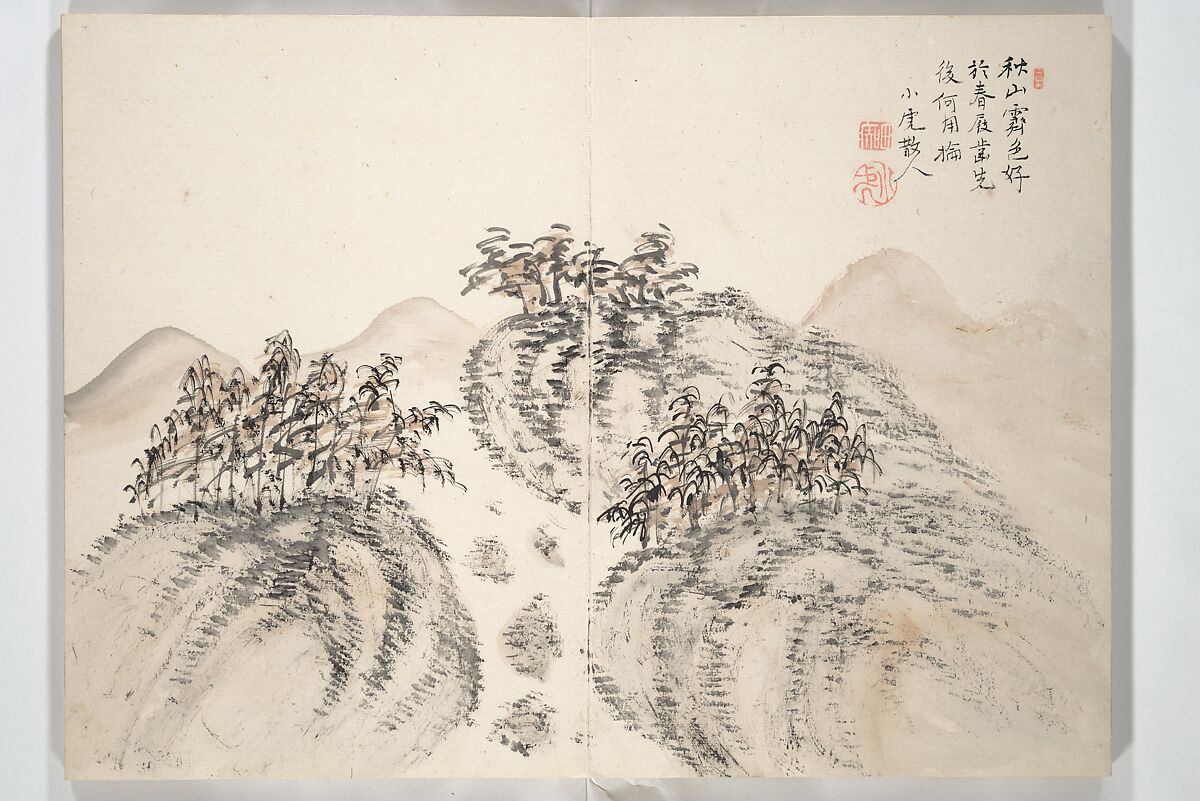 秋山霽色好
於春屐齒先
後何用掄
小虎散人